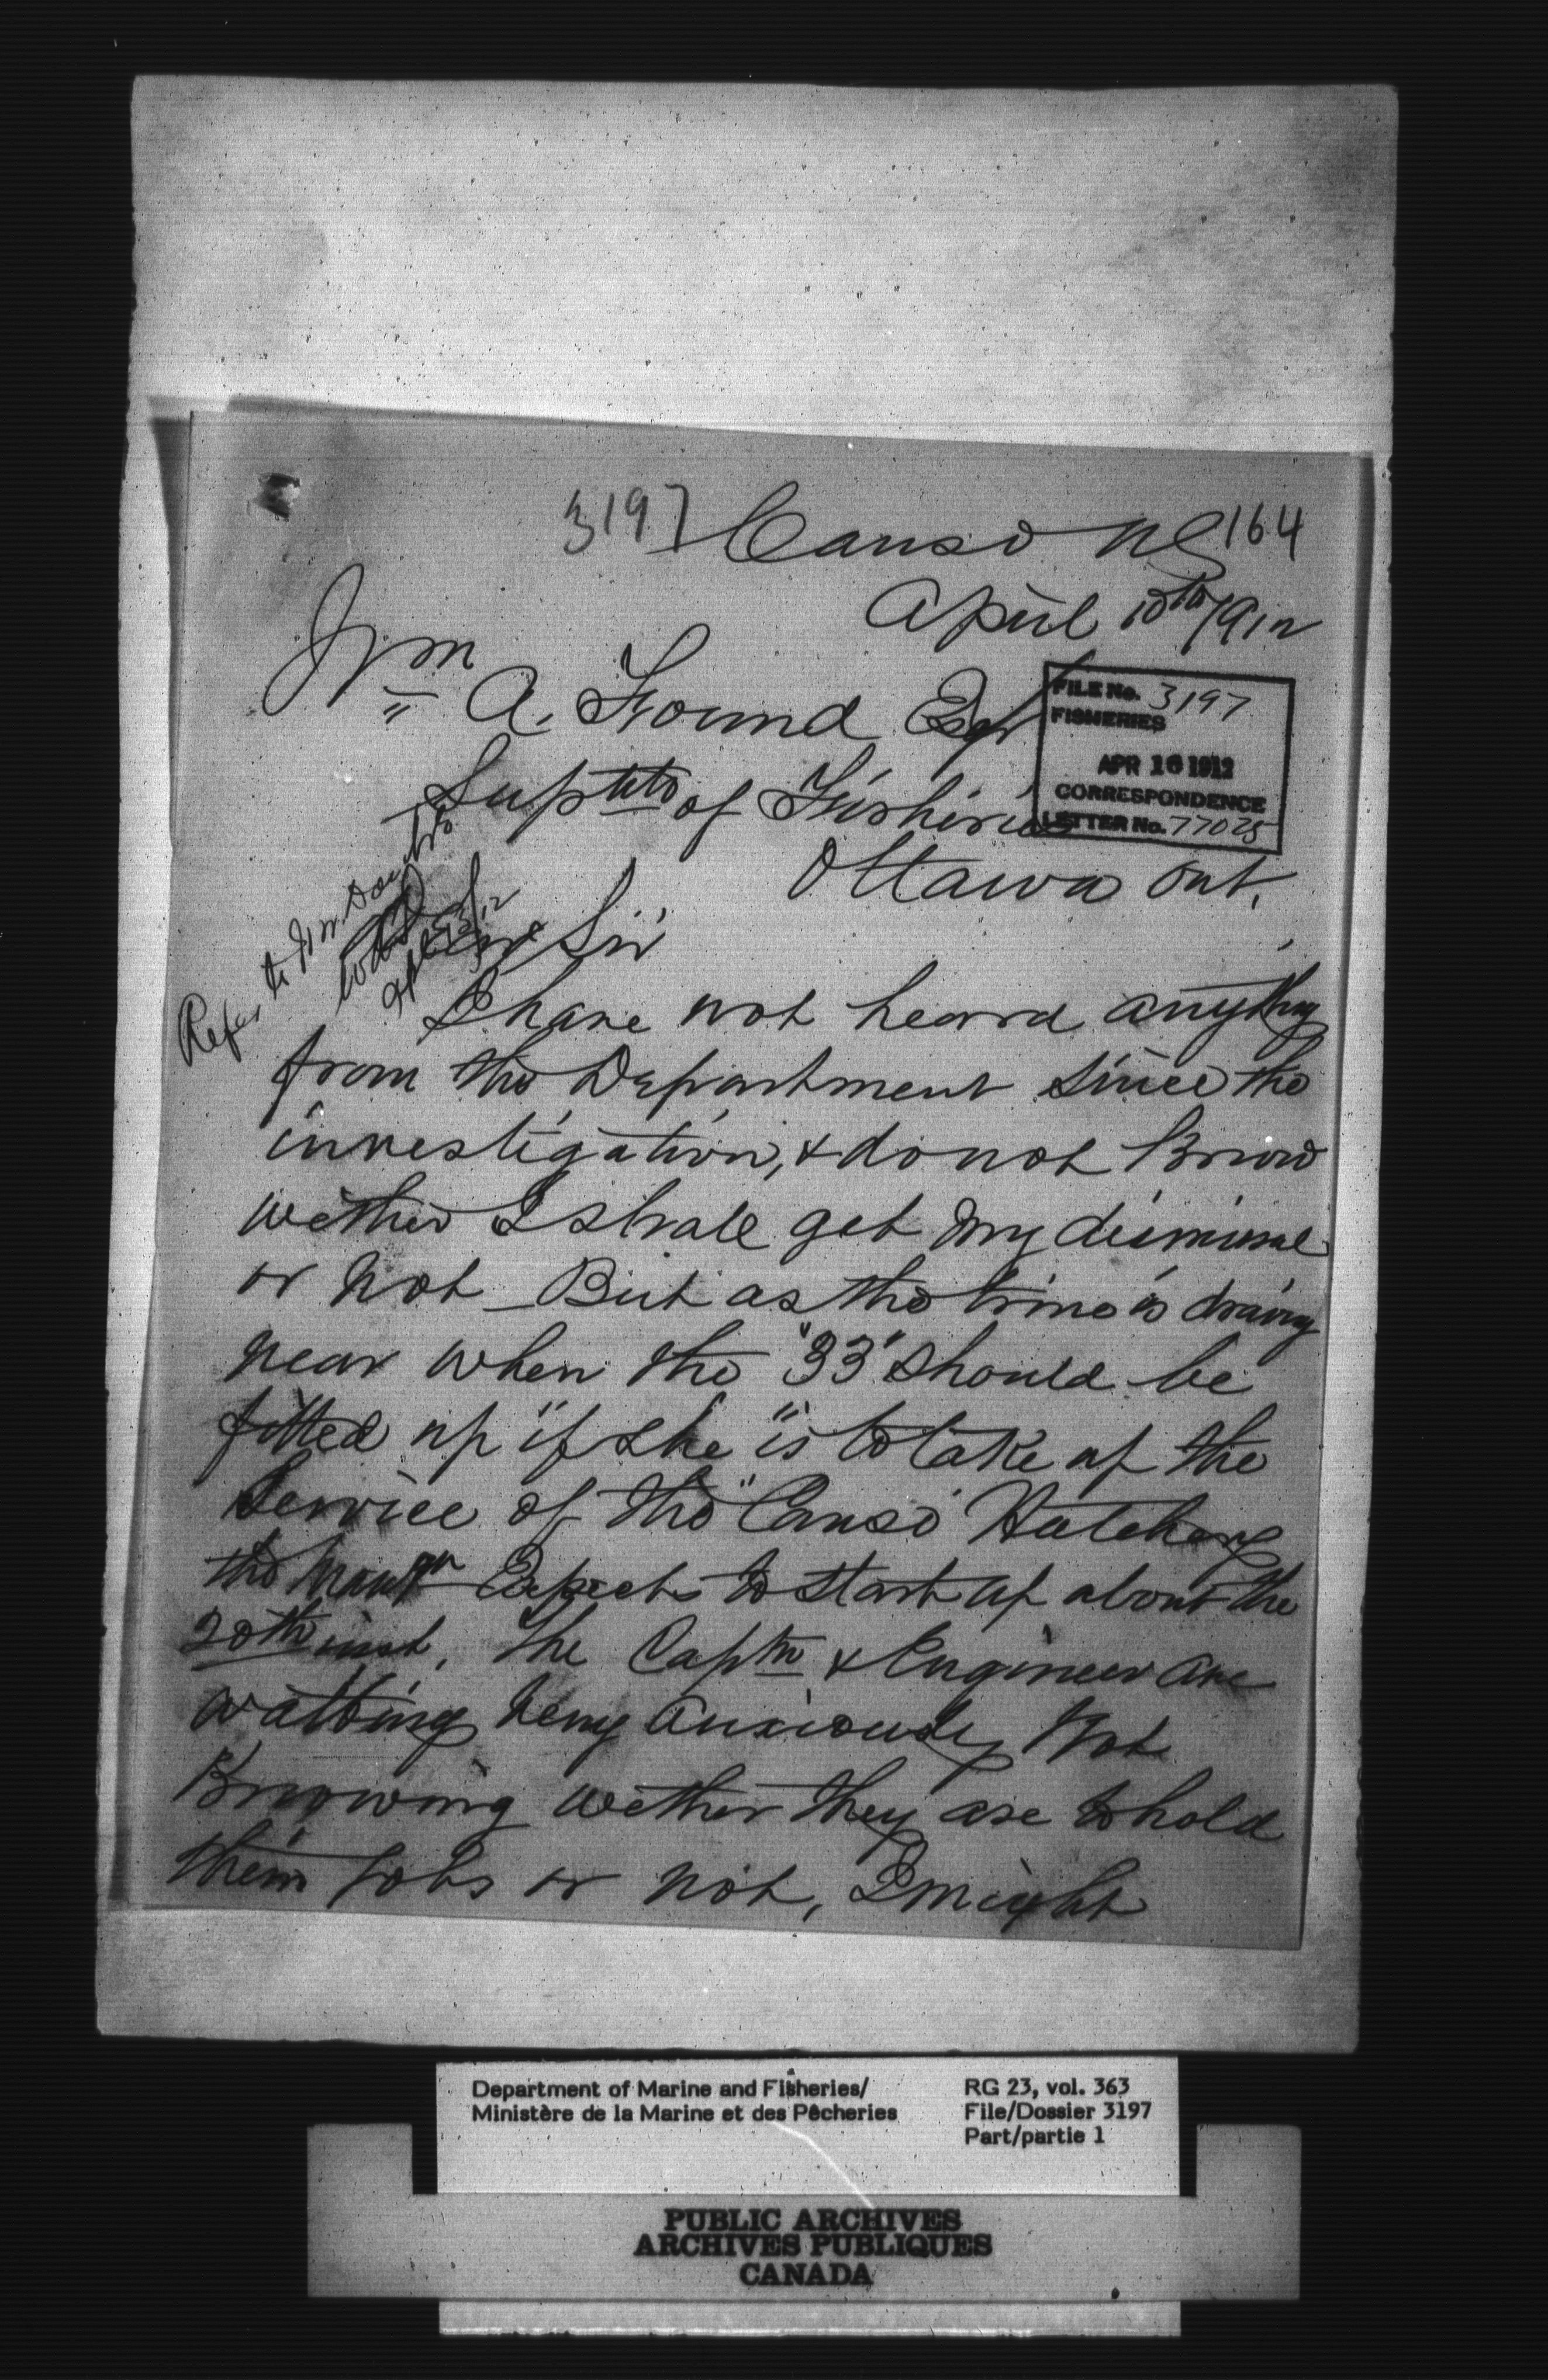 3197 Canso NS 164
April 10th/1912
Wm A. Found Esqr
FILE No. 3197
FISHERIES
APR 16 1912
CORRESPONDENCE
LETTER No. 77025
Suptnt of Fisheries
Ottawa Ont.
Refer to Mr
Dear Sir
I have not heard anything
from the Department since the
investigation, & do not Know
wether I shall get my dismissal
or not _ But as the time is drawing
near when the "33" should be
fitted up "if she "is to take up the
Service of the "Canso Hatchery
the Expects to start up about the
20th inst. The Captn & Engineer are
waiting very anxiously Not
Knowing wether they are to hold
their Jobs or not, I might
Department of Marine and Fisheries/
Ministère de la Marine et des Pêcheries
RG 23, vol. 363
File/Dossier 3197
Part/partie 1
PUBLIC ARCHIVES
ARCHIVES PUBLIQUES
CANADA